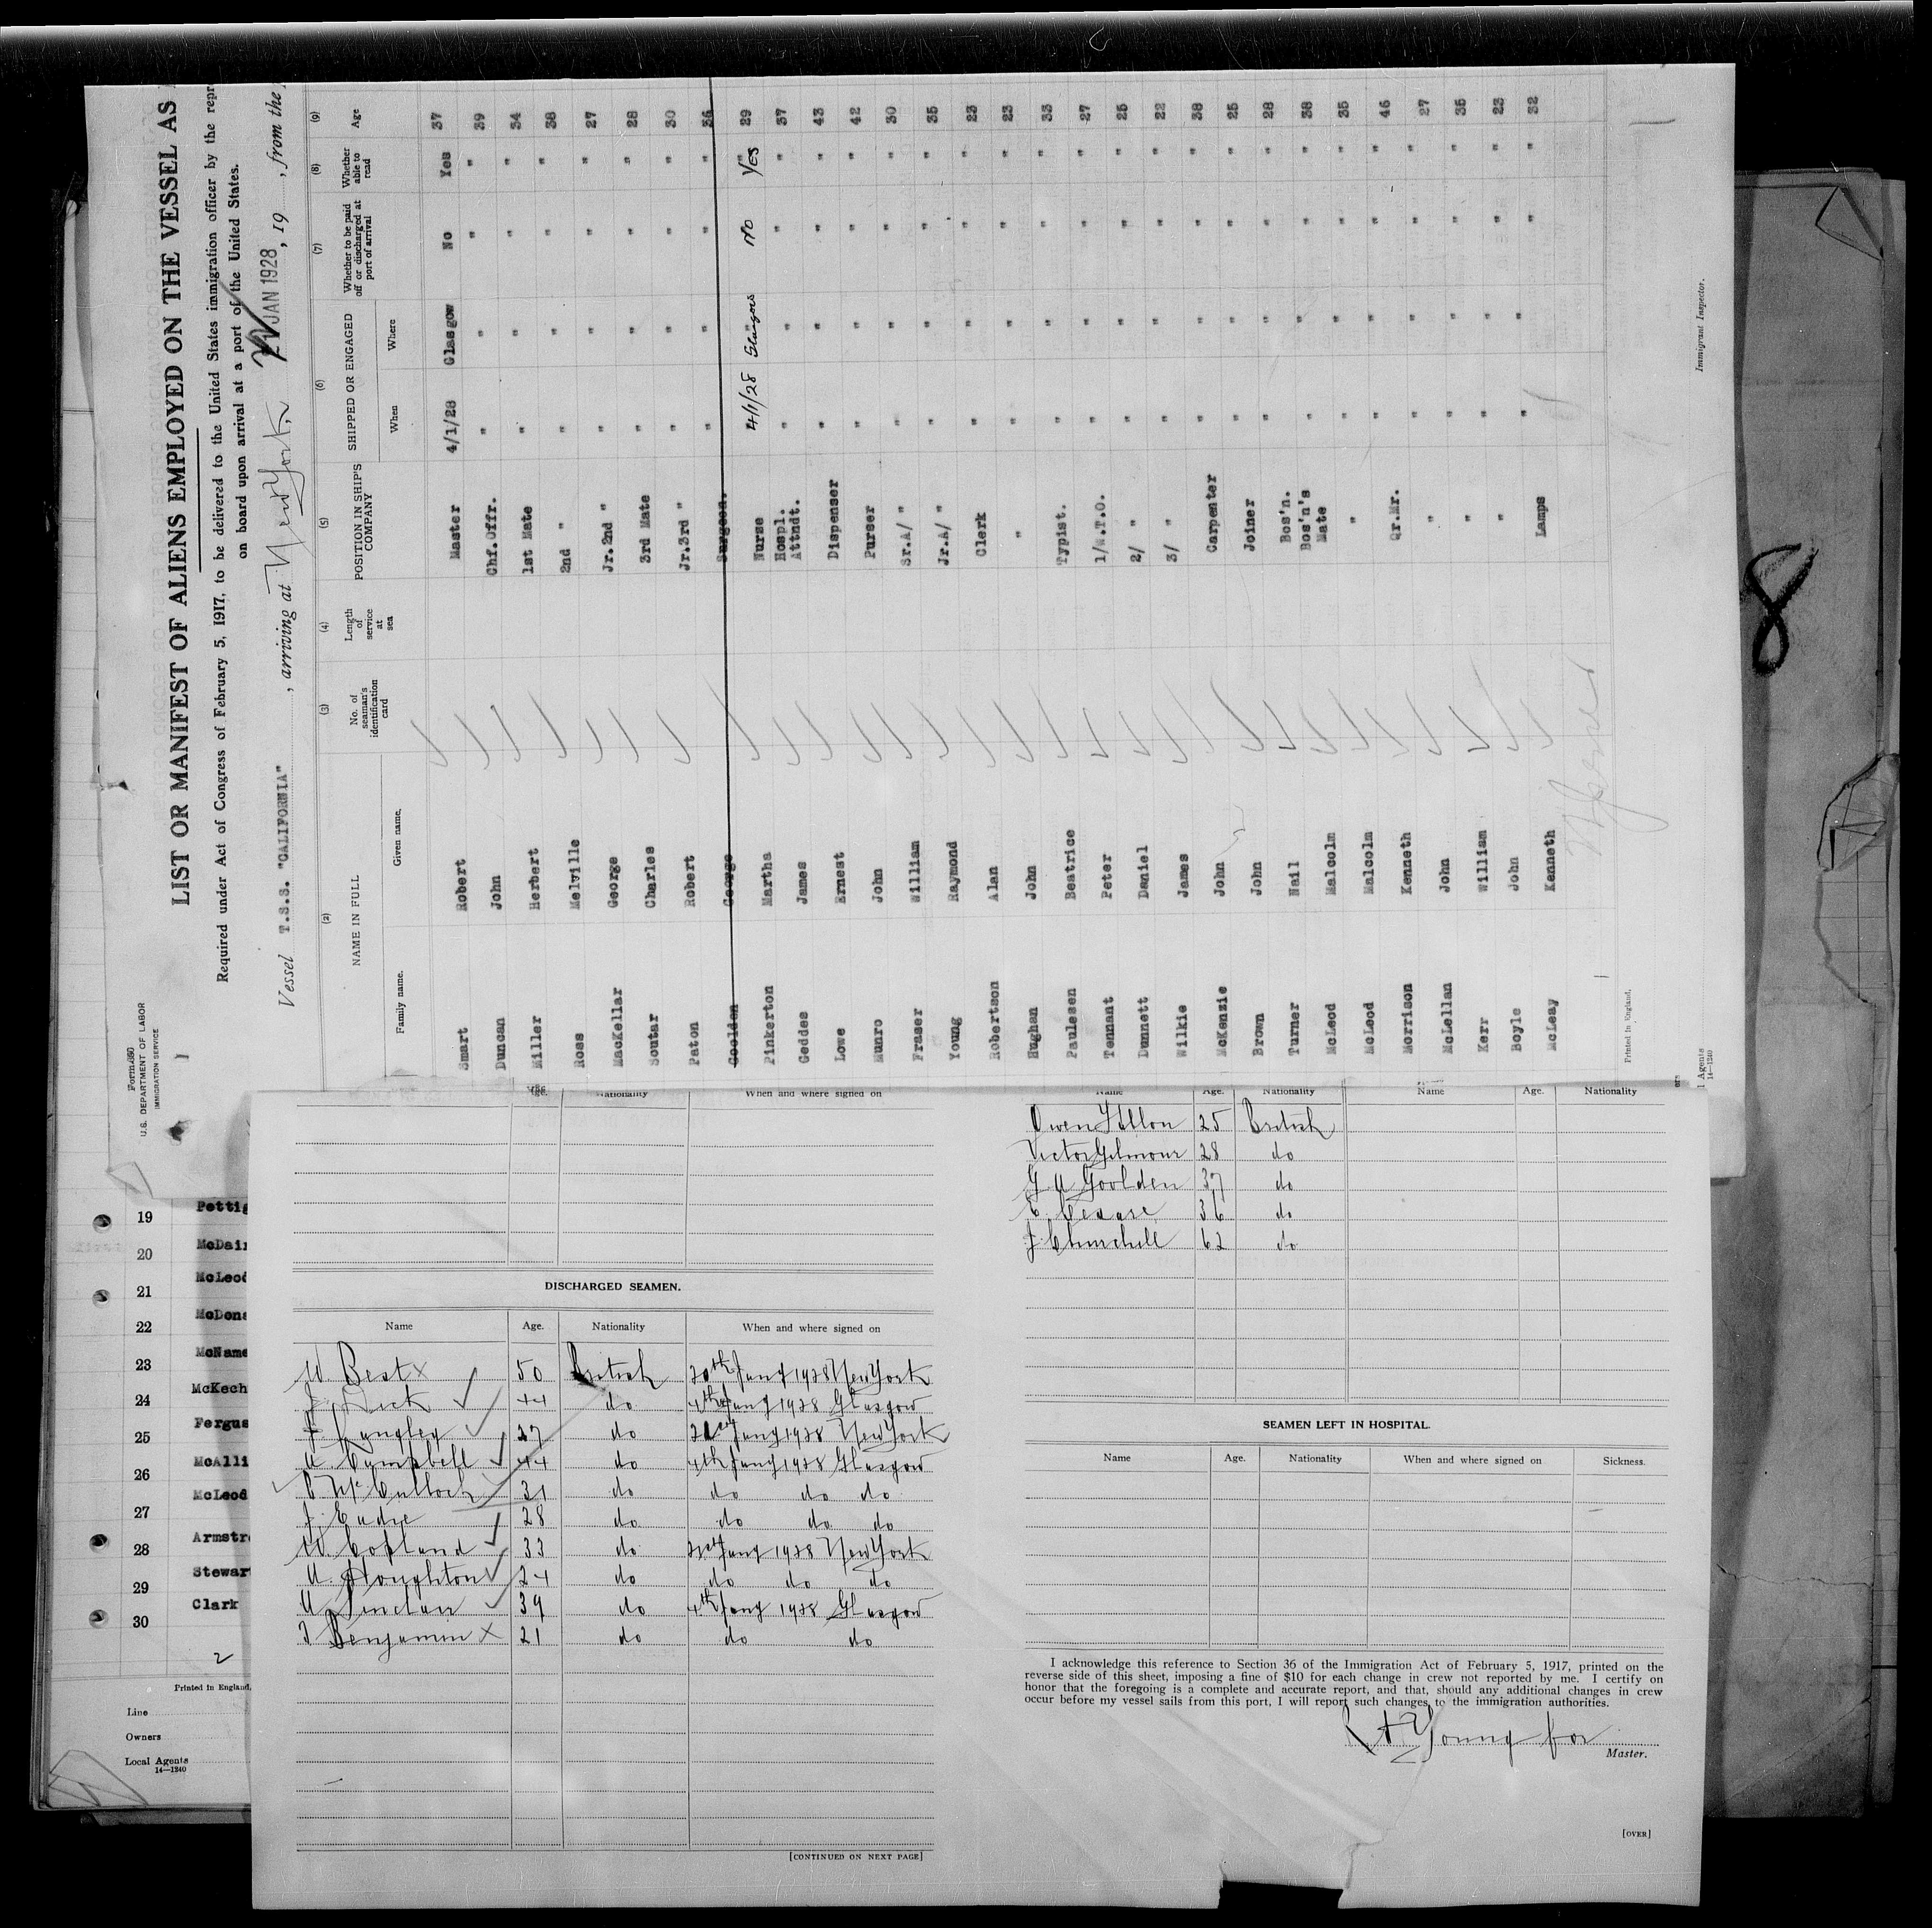 LIST OR MANIFEST OF ALIENS EMPLOYED ON THE VESSEL AS
Required under Act of Congress of February 5, 1917, to be delivered to the United States immigration officer by the repr
on board upon arrival at a port of the United States.
Vessel T.S.S. "CALIFORNIA", arriving at New York, JAN 1928, 19, from the
U.S. DEPARTMENT OF LABOR
IMMIGRATION SERVICE
(2) (3) (4) (5) (6) (7) (8) (9)
NAME IN FULL
Family name. Given name.
No. of seaman's identification card
Length of service at sea
POSITION IN SHIP'S COMPANY
SHIPPED OR ENGAGED
When Where
Whether to be paid off or discharged at port of arrival
Whether able to read
Age
Smart Robert Master 4/1/28 Glasgow No Yes 37
Duncan John Chf.Offr. " " " " 39
Miller Herbert 1st Mate " " " " 34
Ross Melville 2nd " " " " " 38
MacKellar George Jr.2nd " " " " " 27
Soutar Charles 3rd Mate " " " " 28
Paton Robert Jr.3rd " " " " " 30
Goolden George Surgeon. " " " " 36
Pinkerton Martha Nurse 4/1/28 Glasgow No Yes 29
Geddes James Hospl. Attndt. " " " " 37
Lowe Ernest Dispenser " " " " 43
Munro John Purser " " " " 42
Fraser William Sr.A/ " " " " " 30
Young Raymond Jr.A/ " " " " " 35
Robertson Alan Clerk " " " " 23
Hughan John " " " " " 23
Paulesen Beatrice Typist. " " " " 33
Tennant Peter 1/W.T.O. " " " " 27
Dunnett Daniel 2/ " " " " " 25
Wilkie James 3/ " " " " " 22
McKenzie John Carpenter " " " " 38
Brown John Joiner " " " " 25
Turner Nail Bos'n. " " " " 28
McLeod Malcolm Bos'n's Mate " " " " 38
McLeod Malcolm " " " " " 35
Morrison Kenneth Qr.Mr. " " " " 46
McLellan John " " " " " 27
Kerr William " " " " " 35
Boyle John " " " " " 23
McLeay Kenneth Lamps " " " " 32
Printed in England.
Immigrant Inspector.
l Agents
14—1240
8
19 Pettig
20 McDai
21 McLeod
22 McDona
23 McName
24 McKech
25 Fergus
26 McAlli
27 McLeod
28 Armstr
29 Stewar
30 Clark
2
Printed in England.
Line
Owners
Local Agents
14—1240
Age. Nationality When and where signed on
DISCHARGED SEAMEN.
Name Age. Nationality When and where signed on
W. Best x 50 British 20th Jany 1928 New York
J. Dick 44 do 4th Jany 1928 Glasgow
J. Langley 27 do 21st Jany 1928 New York
A. Campbell 44 do 4th Jany 1928 Glasgow
P McCulloch 31 do do do do
J. Eadie 28 do do do do
W. Copland 33 do 21st Jany 1928 New York
A. Houghton 24 do do do do
A Sinclair 39 do 4th Jany 1928 Glasgow
Benjamin x 21 do do do
[CONTINUED ON NEXT PAGE]
Name Age. Nationality Name Age. Nationality
Owen Fallon 25 British
Victor Gilmour 28 do
G A Goolden 37 do
C. Cesare 36 do
J Churchill 62 do
SEAMEN LEFT IN HOSPITAL.
Name Age. Nationality When and where signed on Sickness.
I acknowledge this reference to Section 36 of the Immigration Act of February 5, 1917, printed on the
reverse side of this sheet, imposing a fine of $10 for each change in crew not reported by me. I certify on
honor that the foregoing is a complete and accurate report, and that, should any additional changes in crew
occur before my vessel sails from this port, I will report such changes to the immigration authorities.
R A Young for
Master.
[OVER]